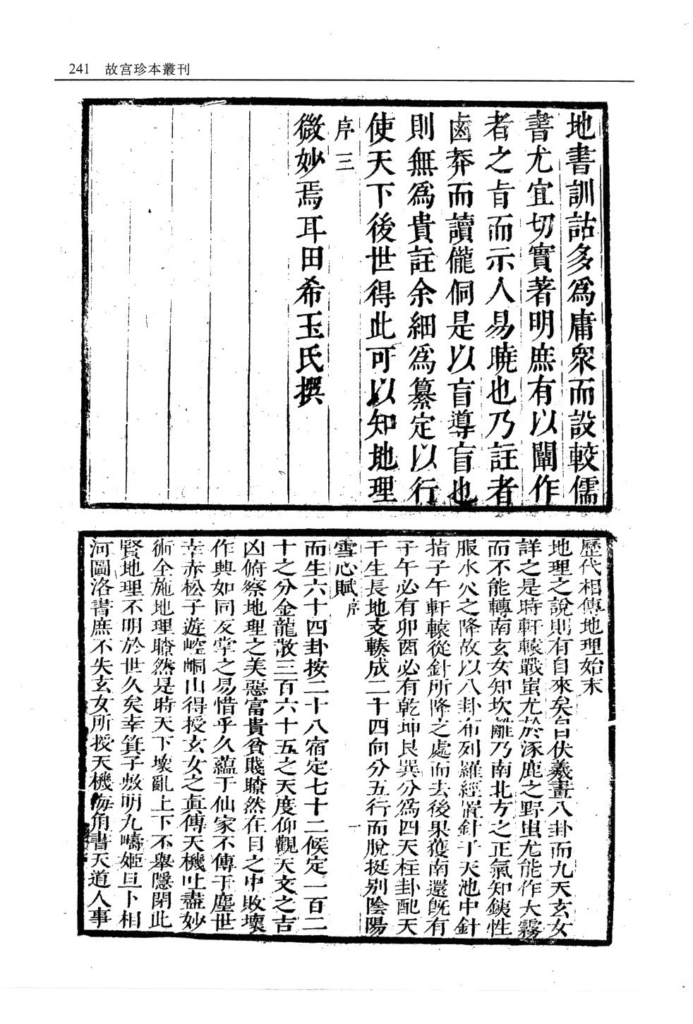 241 故宫珍本叢刊
地書訓詁多爲庸衆而設較儒
書尤宜切實著明庶有以闡作
者之旨而示人易曉也乃註者
鹵莽而讀儱侗是以盲導盲也
則無爲貴註余細爲纂定以行
使天下後世得此可以知地理
序三
微妙焉耳田希玉氏撰
歷代相傳地理始末
地理之說則有自來矣自伏羲畫八卦而九天玄女
詳之是時軒轅戰蚩尤於涿鹿之野蚩尤能作大霧
而不能轉南玄女知坎離乃南北方之正氣知鐵性
服水火之降故以八卦布列羅經置針于天池中針
指子午軒轅從針所降之處而去後果獲南還旣有
子午必有卯酉必有乾坤艮巽分爲四天柱卦配天
干生長地支輳成二十四向分五行而脫挺别陰陽
雪心賦序 一
而生六十四卦按二十八宿定七十二候定一百二
十之分金龍散三百六十五之天度仰觀天文之吉
凶俯察地理之美惡富貴貧賤瞭然在目之中敗壞
作興如同反掌之易惜乎久蘊于仙家不傳于塵世
幸赤松子遊崆峒山得授玄女之眞傳天機吐盡妙
術全施地理瞭然是時天下壞亂上下不舉隱閉此
賢地理不明於世久矣幸箕子敷明九疇姬旦卜相
河圖洛書庶不失玄女所授天機海角書天道人事